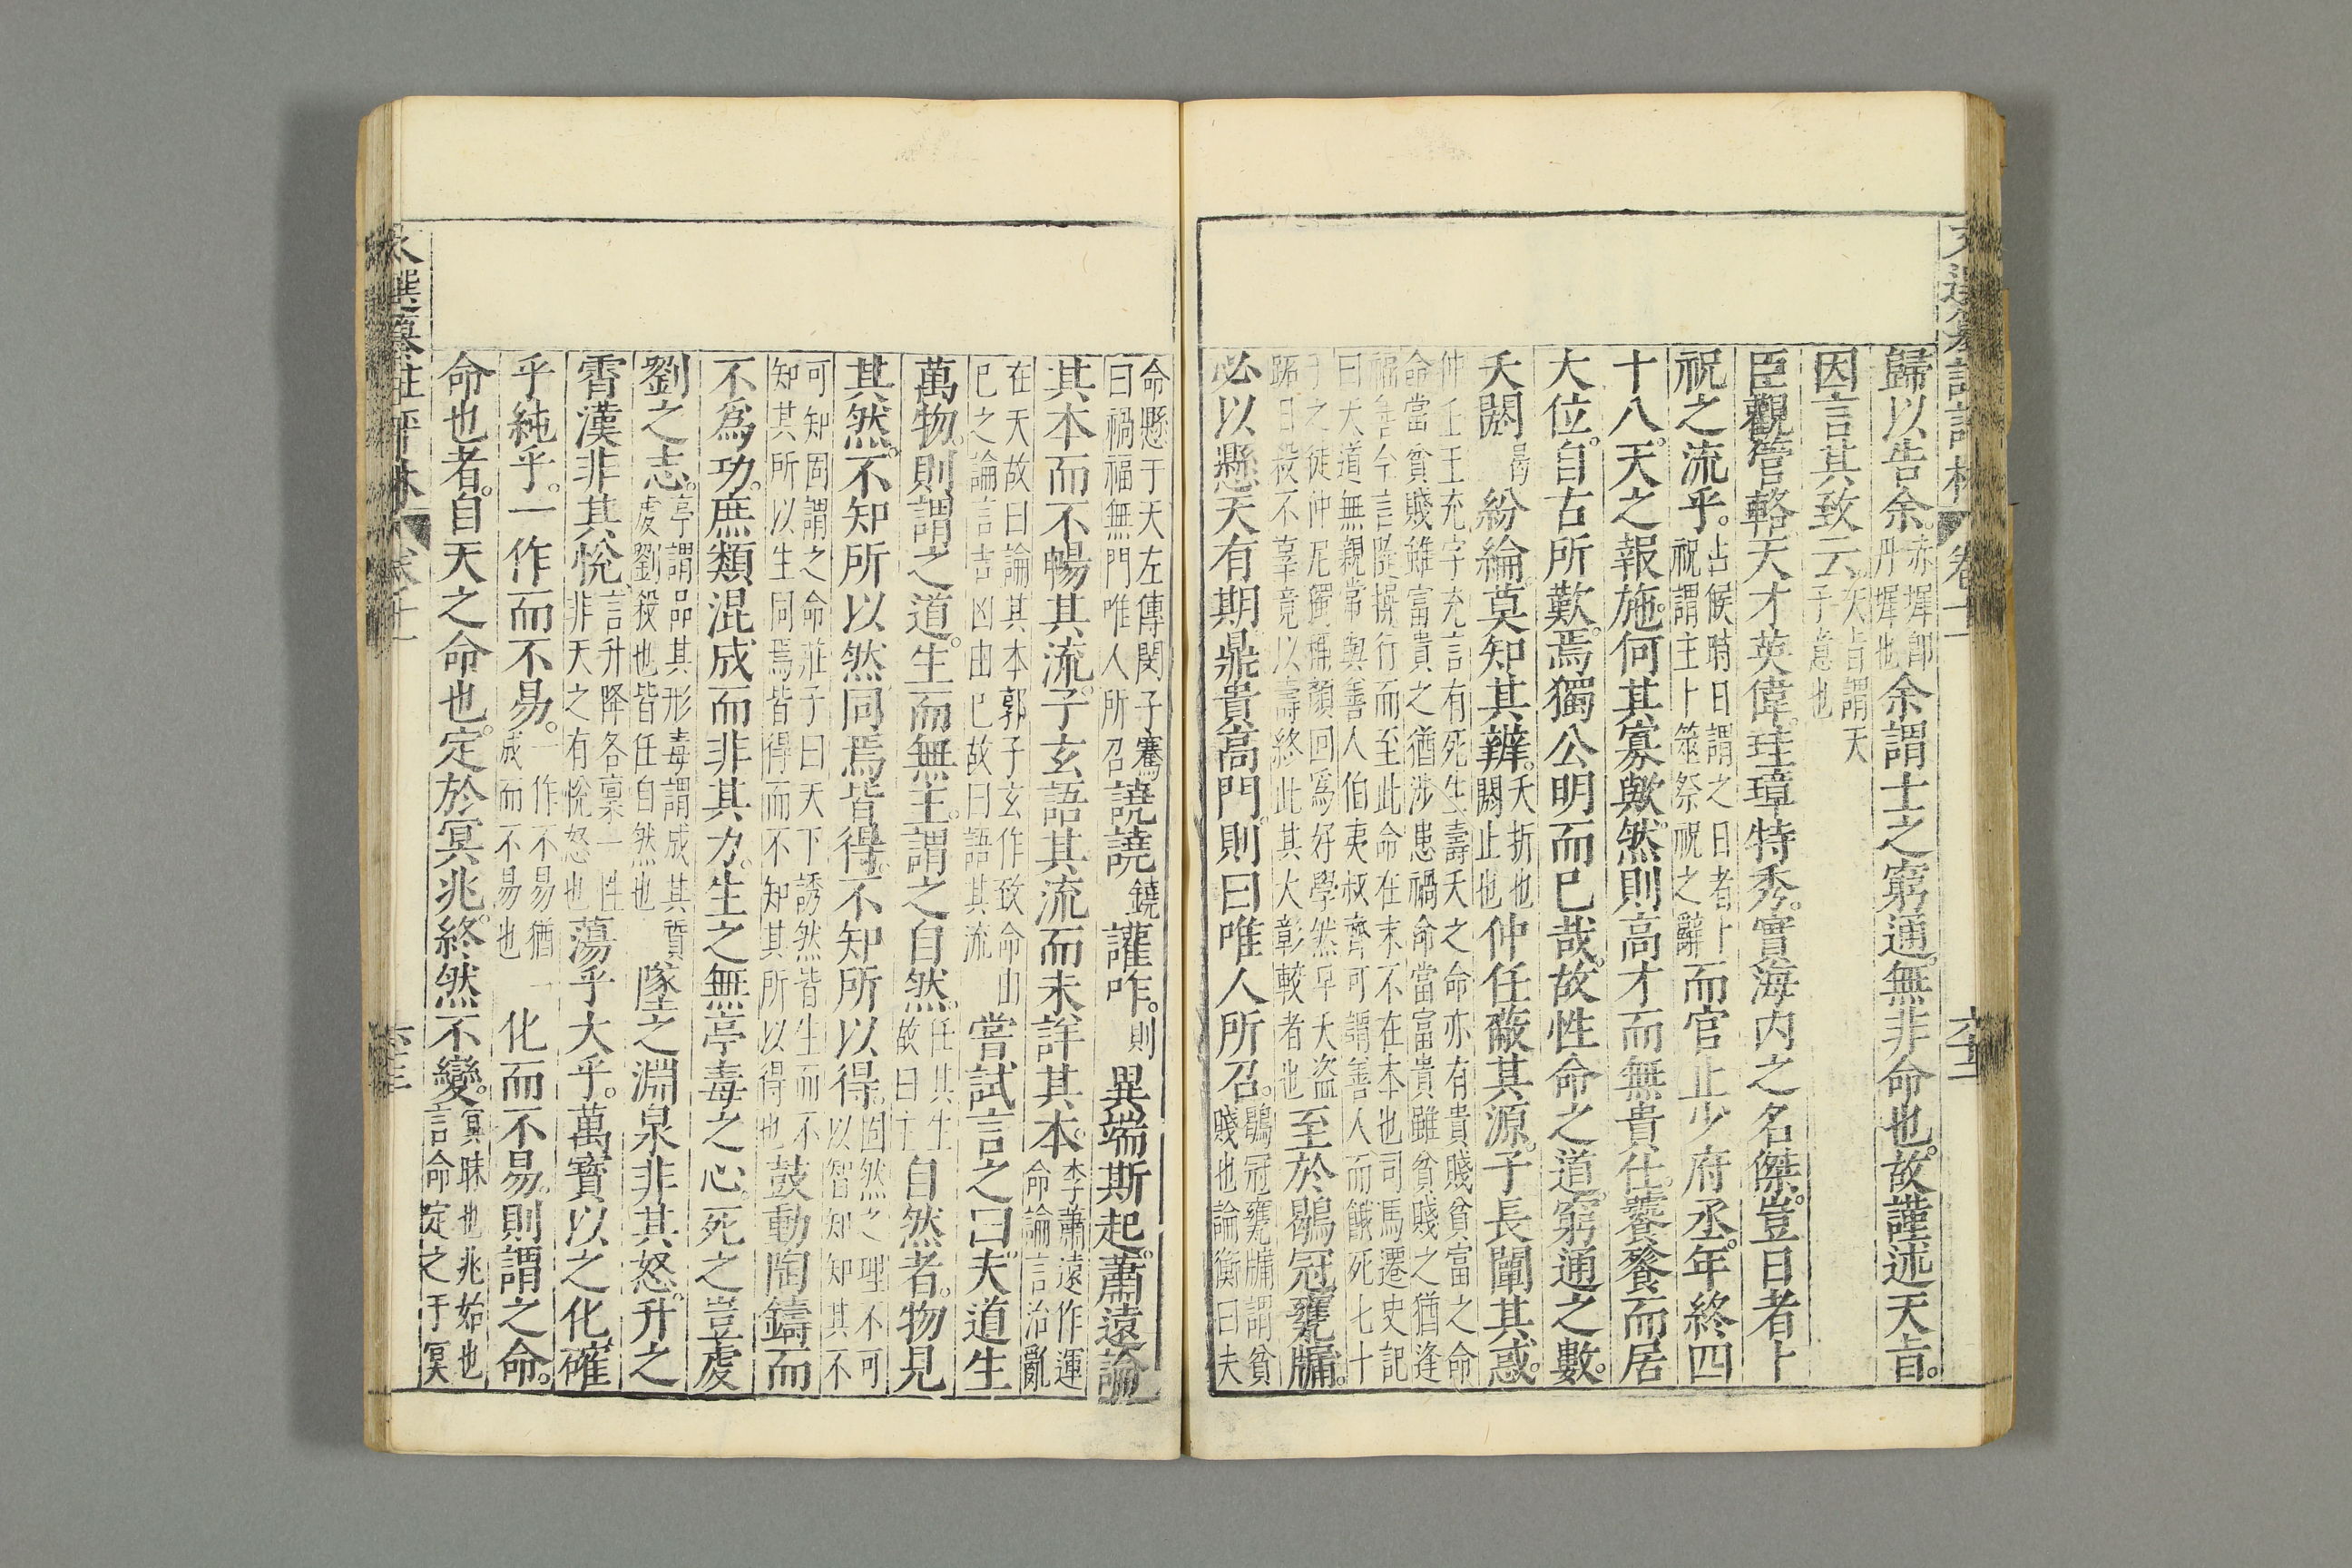 文選纂註評林 卷十一 六十二
歸以告余。赤墀卽丹墀也余謂士之窮通。無非命也。故謹述天旨。
因言其致云。天旨謂天子意也
臣觀管輅天才英偉。珪璋特秀。實海內之名傑。豈日者卜
祝之流乎。占候時日謂之日者卜祝謂主卜筮祭祝之辭而官止少府丞。年終四
十八。天之報施。何其寡歟。然則高才而無貴仕。饕餮而居
大位。自古所歎。焉獨公明而已哉。故性命之道。窮通之數。
夭閼曷紛綸。莫知其辨。夭折也閼止也仲任蔽其源。子長闡其惑。
仲任王充字充言有死生壽夭之命亦有貴賤貧富之命
命當貧賤雖富貴之猶涉患禍命當富貴雖貧賤之猶逢
福善今言隄撕行而至此命在末不在本也司馬遷史記
曰天道無親常與善人伯夷叔齊可謂善人而餓死七十
子之徒仲尼獨稱顏回爲好學然早夭盜
跖日殺不辜竟以壽終此其大彰較者也至於鶡冠甕牖。
必以懸天有期。鼎貴高門。則曰唯人所召。鶡冠甕牖謂貧賤也論衡曰夫
命懸于天左傳閔子騫
曰禍福無門唯人所召譊譊鐃讙咋。則異端斯起。蕭遠論
其本而不暢其流。子玄語其流而未詳其本。李蕭遠作運命論言治亂
在天故曰論其本郭子玄作致命由
已之論言吉凶由已故曰語其流嘗試言之曰。夫道生
萬物。則謂之道。生而無主。謂之自然。任其生故曰主自然者。物見
其然。不知所以然。同焉皆得。不知所以得。固然之理不可以智知知其不
可知固謂之命莊子曰天下誘然皆生而不
知其所以生同焉皆得而不知其所以得也鼓動陶鑄而
不爲功。庶類混成而非其力。生之無亭毒之心。死之豈虔
劉之志。亭謂品其形毒謂成其質虔劉殺也皆任自然也墜之淵泉非其怒。升之
霄漢非其悅。言升降各稟一性非天之有悅怒也蕩乎大乎。萬寶以之化。確
乎純乎。一作而不易。一作不易猶一成而不易也化而不易。則謂之命。
命也者。自天之命也。定於冥兆。終然不變。冥昧也兆始也言命定之于冥
文選纂註評林 卷十一 六十三